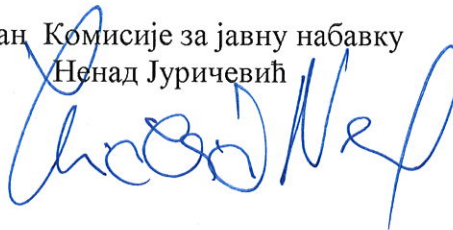 ан Комисије за јавну набавку
Ненад Јуричевић